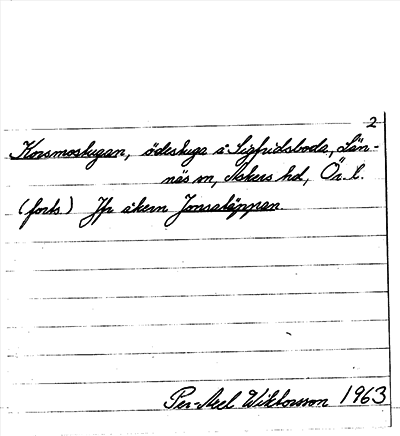 2
Korsmostugan, ödestuga å Sigfridsboda, Län-
näs sn, Askers hd, Ör. l.
(forts.) Jfr åkern Jonsatäppan.
Per-Axel Wiktorsson 1963